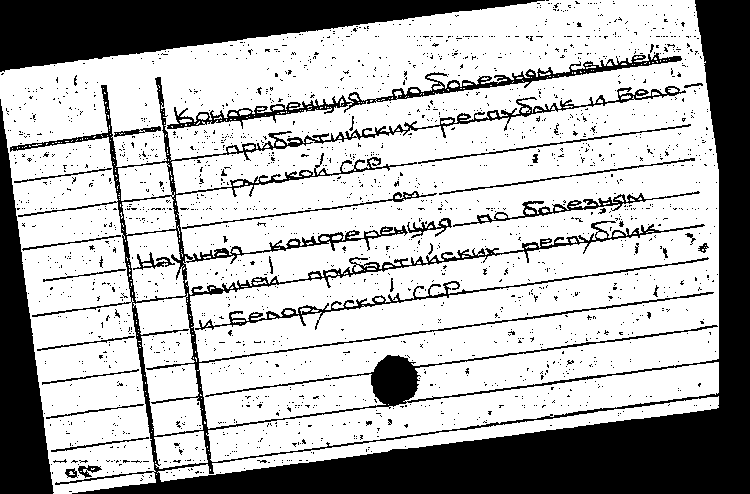 Конференция по болезням свиней
прибалтийских республик и Бело-
русской ССР.
см
Научная конференция по болезням
свиней прибалтийских республик
и Белорусской ССР.